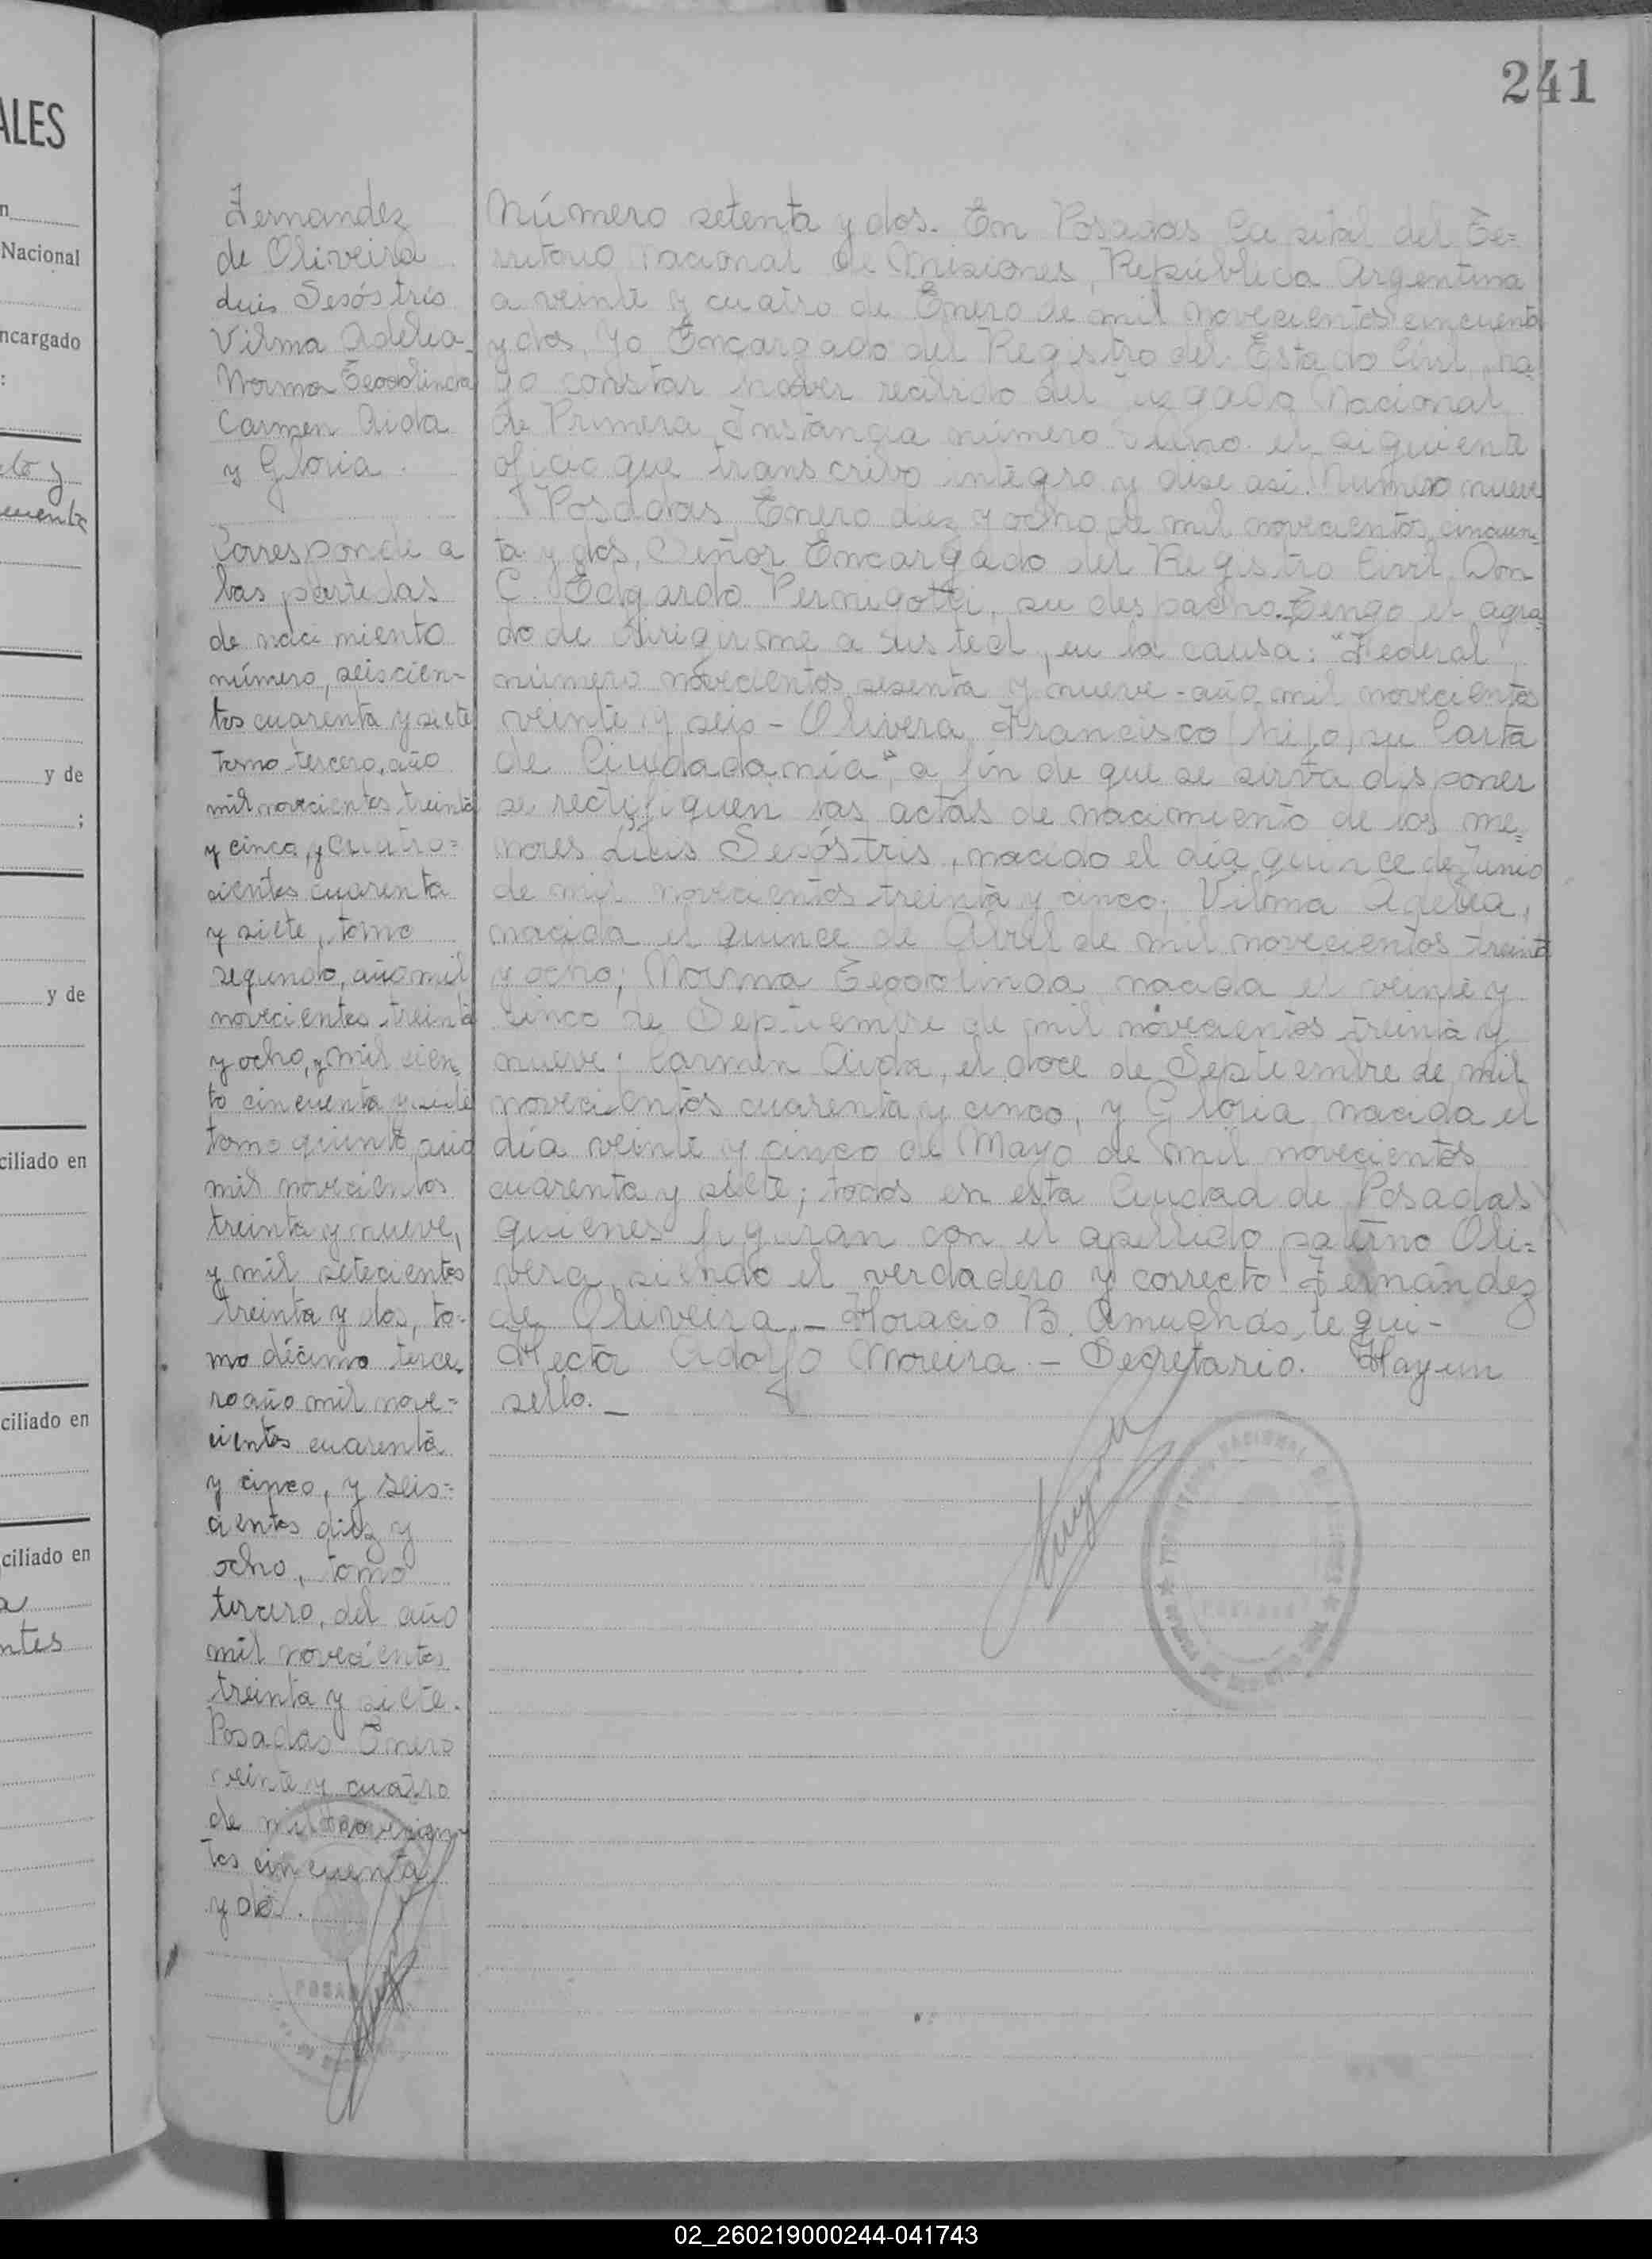 241
ALES
n
Nacional
ncargado
:
y de
;
y de
ciliado en
ciliado en
ciliado en
a
ntes
Fernandez
de Oliveira
Luis Sesóstris
Vilma Adelia
Norma Teodolinda
Carmen Aida
y Gloria.
Corresponde a
las partidas
de naci miento
número, seiscien-
tos cuarenta y siete
tomo tercero, año
mil novecientos treinta
y cinco, y cuatro=
cientos cuarenta
y siete, tomo
segundo, año mil
novecientos treinta
y ocho, y mil cien
to cincuenta y siete
tomo quinto, año
mil novecientos
treinta y nueve,
y mil setecientos
treinta y dos, to-
mo décimo terce
ro año mil nove=
cientos cuarenta
y cinco, y seis=
cientos diez y
ocho, tomo
tercero, del año
mil novecientos
treinta y siete.
Posadas Enero
veinte y cuatro
de mil novecien
tos cincuenta
y dos.
POSADAS
Número setenta y dos. En Posadas Capital del Te=
rritorio Nacional de Misiones, República Argentina
a veinte y cuatro de Enero de mil novecientos cincuenta
y dos, Yo Encargado del Registro del Estado Civil, ha=
go constar haber recibido del Juzgado Nacional
de Primera Instancia número Uno el siguiente
oficio que transcribo integro y dice asi. Numero nueve
Posadas, Enero diez y ocho de mil novecientos cincuen=
ta y dos, Señor Encargado del Registro Civil, Don
C. Edgardo Pernigotti, su despacho. Tengo el agra=
do de dirigirme a usted, en la causa: "Federal
número novecientos sesenta y nueve - año mil novecientos
veinte y seis - Olivera Francisco (hijo) su Carta
de Ciudadanía", a fin de que se sirva disponer
se rectifiquen las actas de nacimiento de los me=
nores Luis Sesóstris, nacido el día quince de Junio
de mil novecientos treinta y cinco; Vilma Adelia,
nacida el quince de Abril de mil novecientos treinta
y ocho; Norma Teodolinda nacida el veinte y
cinco de Septiembre de mil novecientos treinta y
nueve; Carmen Aida, el doce de Septiembre de mil
novecientos cuarenta y cinco, y Gloria nacida el
día veinte y cinco de Mayo de mil novecientos
cuarenta y siete; todos en esta Ciudad de Posadas
quienes figuran con el apellido paterno Oli=
vera, siendo el verdadero y correcto Fernández
de Oliveira. - Horacio B. Amuchástegui -
Hector Adolfo Moreira - Secretario. Hay un
sello. -
02_260219000244-041743